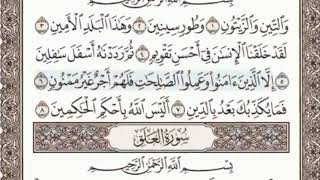 بِسْمِ ٱللَّهِ ٱلرَّحْمَٰنِ ٱلرَّحِيمِ
وَٱلتِّينِ وَٱلزَّيْتُونِ ١ وَطُورِ سِينِينَ ٢ وَهَٰذَا ٱلْبَلَدِ ٱلْأَمِينِ ٣
لَقَدْ خَلَقْنَا ٱلْإِنسَٰنَ فِىٓ أَحْسَنِ تَقْوِيمٍ ٤ ثُمَّ رَدَدْنَٰهُ أَسْفَلَ سَٰفِلِينَ
٥ إِلَّا ٱلَّذِينَ ءَامَنُوا۟ وَعَمِلُوا۟ ٱلصَّٰلِحَٰتِ فَلَهُمْ أَجْرٌ غَيْرُ مَمْنُونٍ
٦ فَمَا يُكَذِّبُكَ بَعْدُ بِٱلدِّينِ ٧ أَلَيْسَ ٱللَّهُ بِأَحْكَمِ ٱلْحَٰكِمِينَ ٨
سُورَةُ ٱلْعَلَقِ
بِسْمِ ٱللَّهِ ٱلرَّحْمَٰنِ ٱلرَّحِيمِ